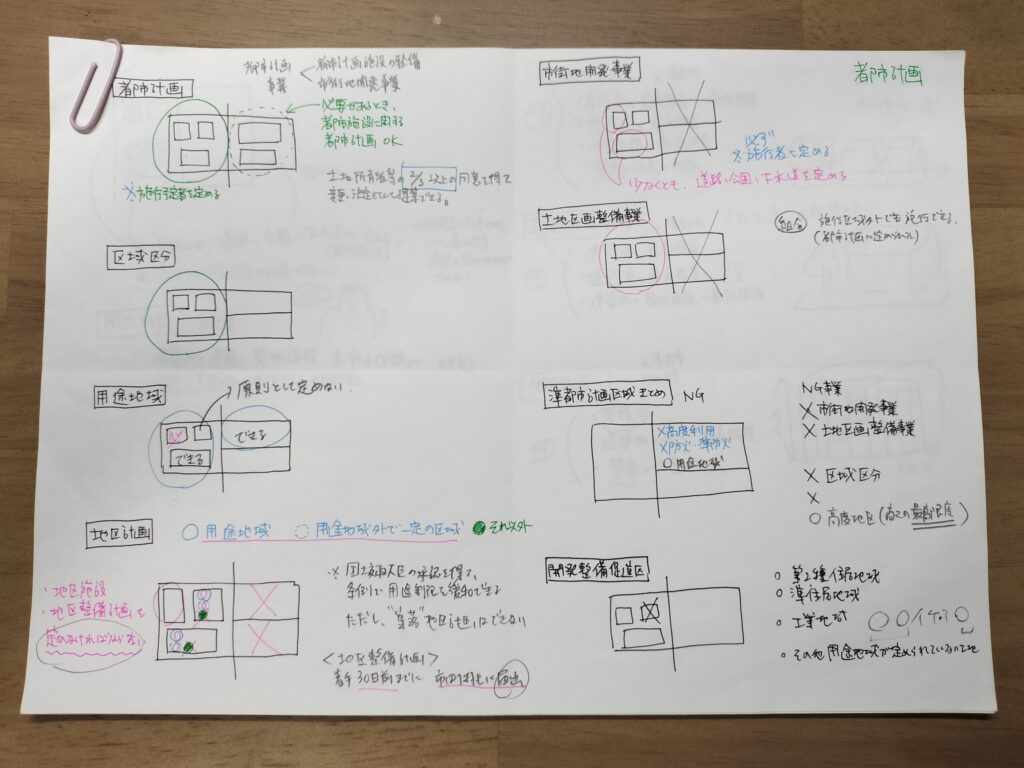 都市計画
都市計画
事業
都市計画施設の整備
市街地開発事業
必要があるとき、
都市施設に関する
都市計画OK
※施行予定者を定める
土地所有者等の2/3以上の同意を得て
提案できる。
区域区分
用途地域
原則として定めない
できる
できる
地区計画
用途地域
用途地域外で一定の区域
それ以外
・地区施設
・地区整備計画を
定めなければならない
※国土交通大臣の承認を得て、
条例で用途制限を緩和できる
ただし、"集落"地区計画はできない
<地区整備計画>
着手30日前までに 市町村長に届出
都市計画
市街地開発事業
必ず
※施行者を定める
少なくとも、道路、公園、下水道を定める
土地区画整備事業
組合
施行区域外でも施行できる。
(都市計画に定められた)
準都市計画区域まとめ NG
×高度利用
×防火・準防火
○用途地域
NG事業
×市街地開発事業
×土地区画整備事業
×区域区分
×
○高度地区(高さの最高限度)
開発整備促進区
○第2種住居地域
○準住居地域
○工業地域
○その他用途地域が定められていない土地